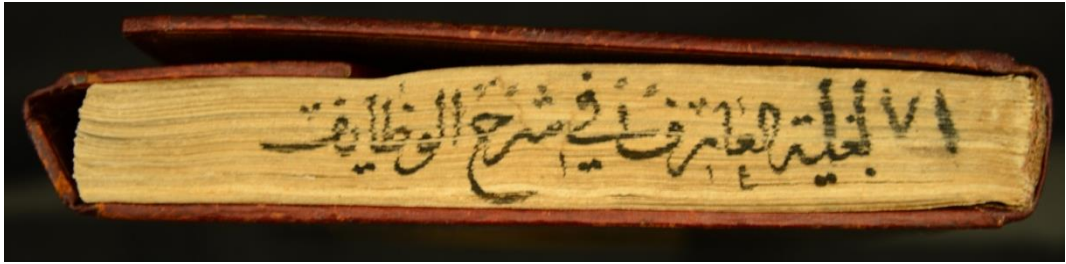 ٧١ بغية العارف في شرح الوظايف